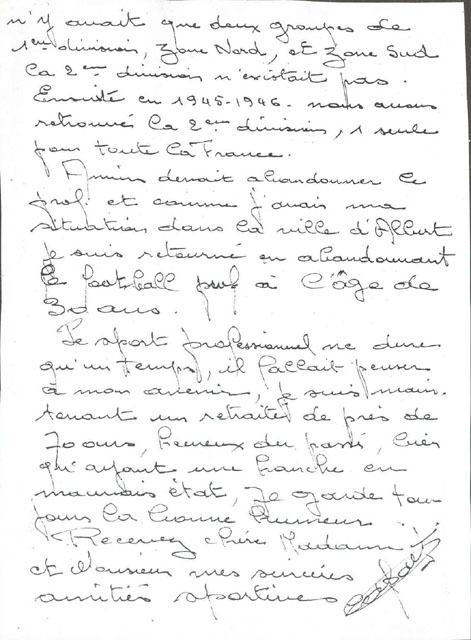 n'y avait que deux groupes de
1ère division, Zone Nord, et Zone Sud
La 2ème division n'existait pas.
Ensuite en 1945-1946. nous avons
retrouvé la 2ème division, 1 seule
pour toute la France.
Amiens devait abandonner le
prof. et comme j'avais ma
situation dans la ville d'Albert
je suis retourné en abandonnant
le football prof à l'âge de
30 ans.
Le sport professionnel ne dure
qu'un temps, il fallait penser
à mon avenir, je suis main-
tenant un retraité de près de
70 ans, heureux du passé, bien
qu'ayant une hanche en
mauvais état, je garde tou-
jours la bonne humeur
Recevez chère Madame
et Monsieur mes sincères
amitiés sportives